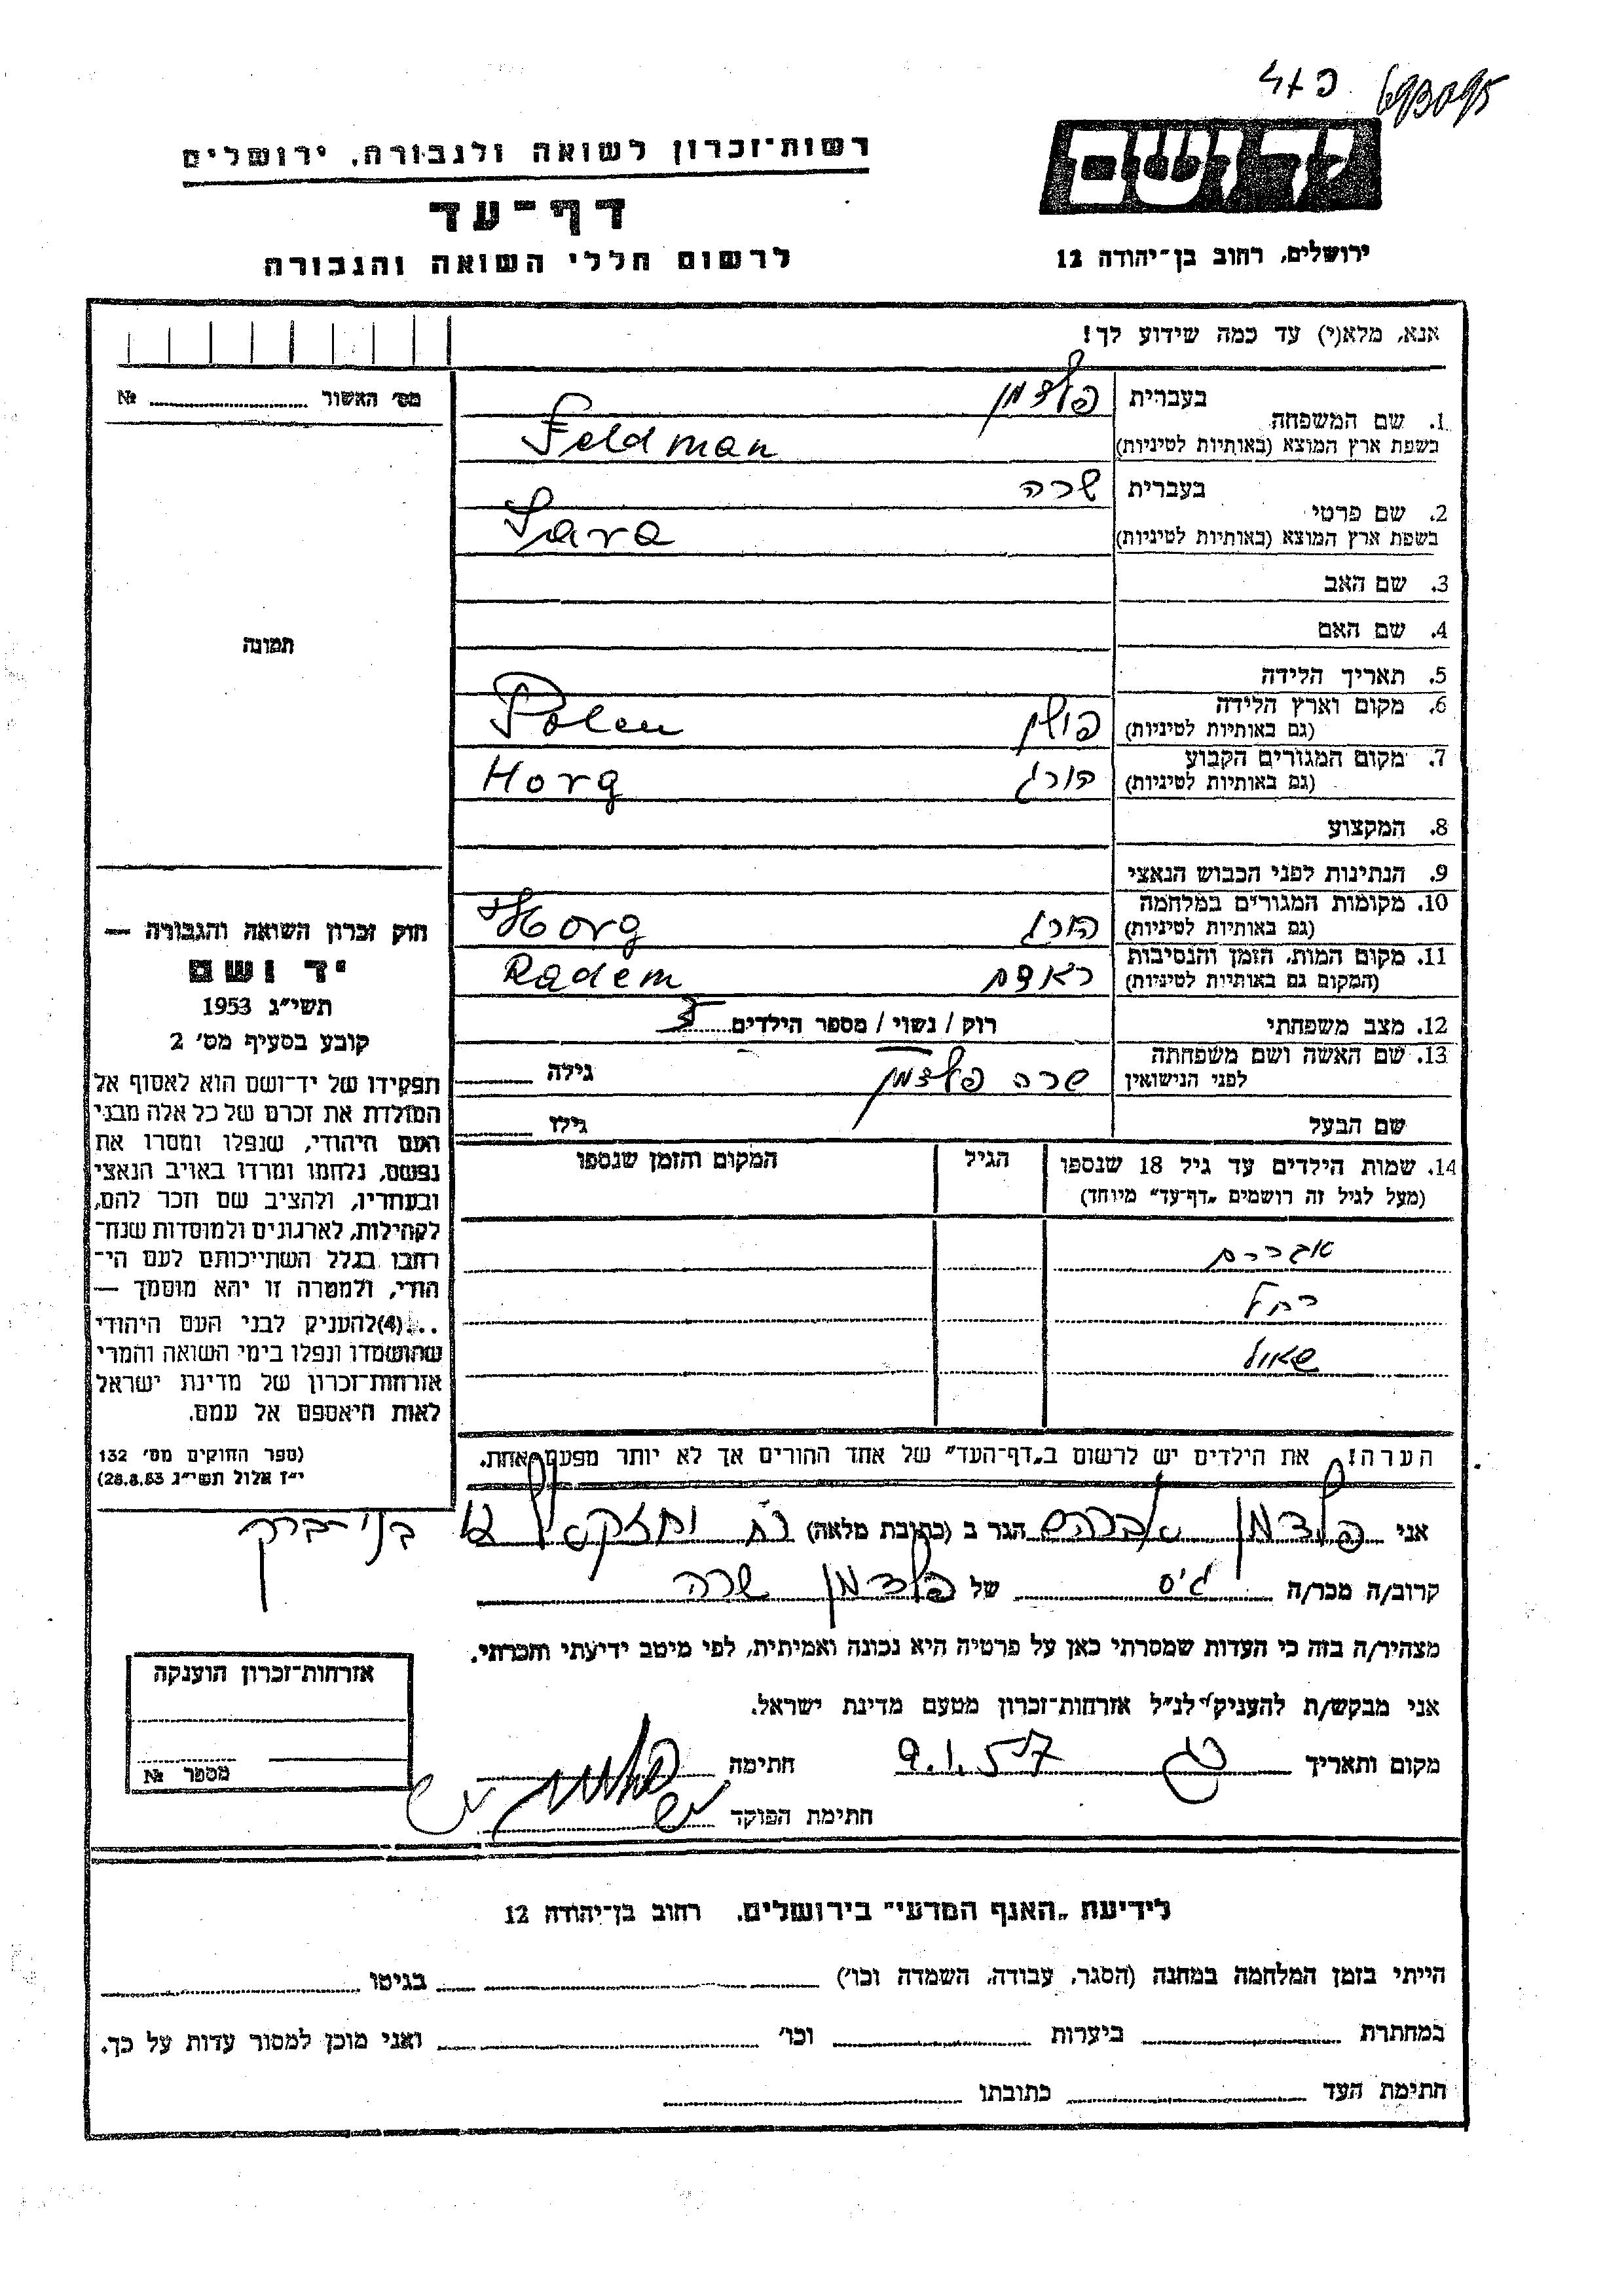 רשות־זכרון לשואה ולגבורה, ירושלים
דף־עד
לרשום חללי השואה והגבורה
יד ושם
ירושלים, רחוב בן־יהודה 12
אנא, מלא(י) עד כמה שידוע לך!
מס׳ האשור № 
תמונה
1. שם המשפחה
בעברית פלדמן
בשפת ארץ המוצא (באותיות לטיניות) Feldman
2. שם פרטי
בעברית שרה
בשפת ארץ המוצא (באותיות לטיניות) Sara
3. שם האב
4. שם האם
5. תאריך הלידה
6. מקום וארץ הלידה
(גם באותיות לטיניות) פולין Polen
7. מקום המגורים הקבוע
(גם באותיות לטיניות) הורג Horg
8. המקצוע
9. הנתינות לפני הכבוש הנאצי
10. מקומות המגורים במלחמה
(גם באותיות לטיניות) הורג Horg
11. מקום המות, הזמן והנסיבות
(המקום גם באותיות לטיניות) ראדם Radem
12. מצב משפחתי רוק / נשוי / מספר הילדים 3
13. שם האשה ושם משפחתה
לפני הנישואין שרה פלדמן גילה
שם הבעל גילו
14. שמות הילדים עד גיל 18 שנספו הגיל המקום והזמן שנספו
(מעל לגיל זה רושמים „דף־עד״ מיוחד)
אברהם
רחל
שאול
הערה: את הילדים יש לרשום ב„דף־העד״ של אחד ההורים אך לא יותר מפעם אחת.
חוק זכרון השואה והגבורה —
יד ושם
תשי״ג 1953
קובע בסעיף מס׳ 2
תפקידו של יד־ושם הוא לאסוף אל
המולדת את זכרם של כל אלה מבני
העם היהודי, שנפלו ומסרו את
נפשם, נלחמו ומרדו באויב הנאצי
ובעוזריו, ולהציב שם וזכר להם,
לקהילות, לארגונים ולמוסדות שנח־
רבו בגלל השתייכותם לעם הי־
הודי, ולמטרה זו יהא מוסמך —
...(4)להעניק לבני העם היהודי
שהושמדו ונפלו בימי השואה והמרי
אזרחות־זכרון של מדינת ישראל
לאות היאספם אל עמם.
(ספר החוקים מס׳ 132
י״ז אלול תשי״ג 28.8.53)
אני פלדמן אברהם הגר ב (כתובת מלאה) בני־ברק
קרוב/ה מכר/ה גיס של פלדמן שרה
מצהיר/ה בזה כי העדות שמסרתי כאן על פרטיה היא נכונה ואמיתית, לפי מיטב ידיעתי והכרתי.
אני מבקש/ת להעניק לנ״ל אזרחות־זכרון מטעם מדינת ישראל.
מקום ותאריך 9.1.57 חתימה
חתימת הפוקד
אזרחות־זכרון הוענקה
מספר №
לידיעת „האגף המדעי״ בירושלים, רחוב בן־יהודה 12
הייתי בזמן המלחמה במחנה (הסגר, עבודה, השמדה וכו׳) בגיטו
במחתרת ביערות וכו׳ ואני מוכן למסור עדות על כך.
חתימת העד כתובתו